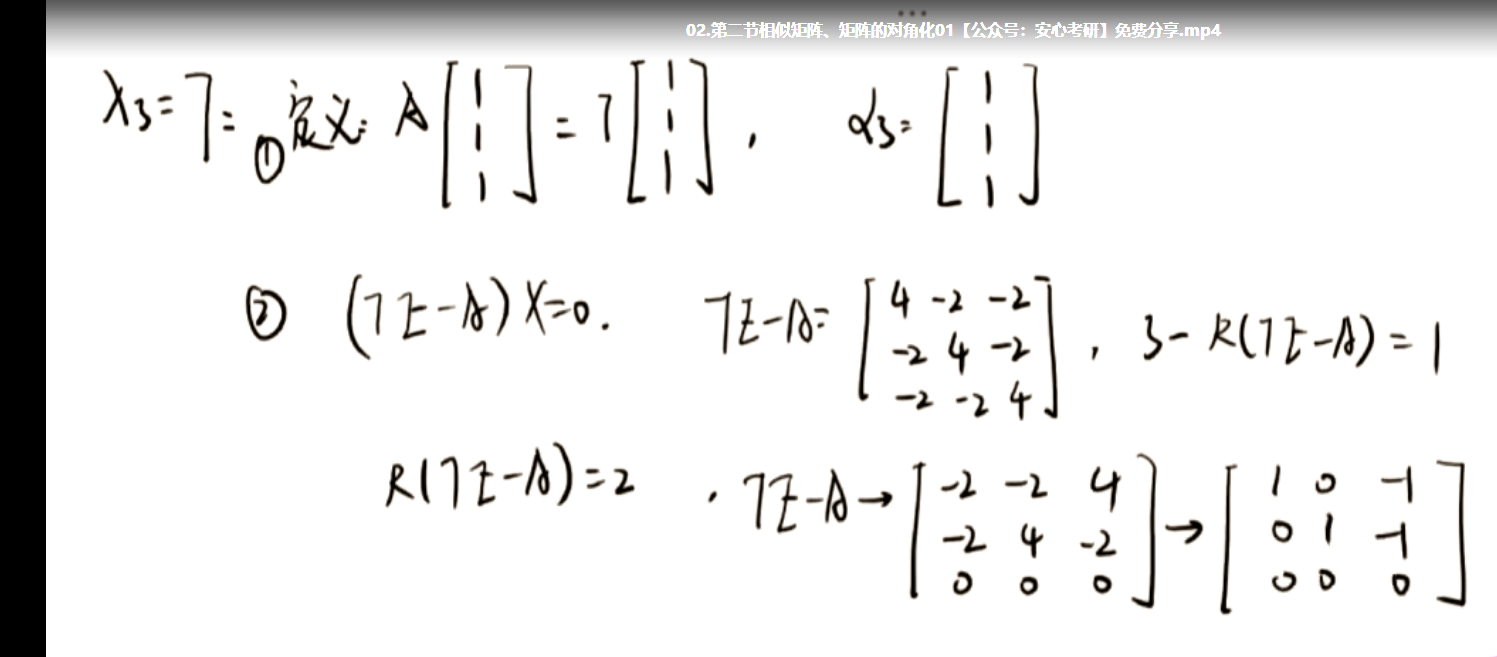 02.第二节相似矩阵、矩阵的对角化01【公众号：安心考研】免费分享.mp4
λ₃=7: ①定义: A[1 1 1] = 7[1 1 1], α₃=[1 1 1]
② (7E-A)X=0. 7E-A= [4 -2 -2; -2 4 -2; -2 -2 4], 3-R(7E-A)=1
R(7E-A)=2 , 7E-A→ [-2 -2 4; -2 4 -2; 0 0 0] → [1 0 -1; 0 1 -1; 0 0 0]